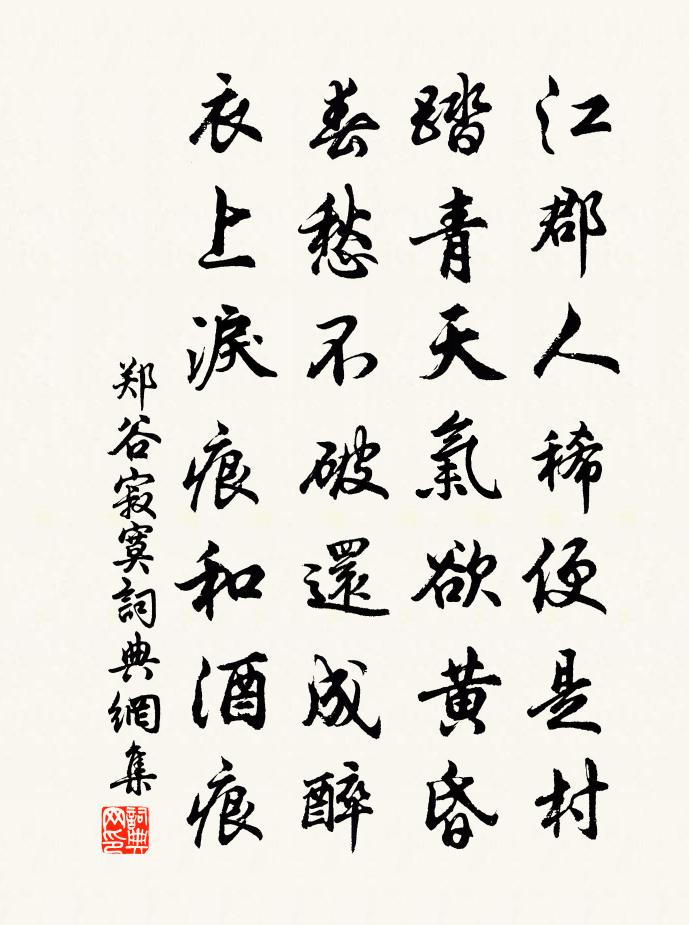 江郡人稀便是村
踏青天氣欲黄昏
春愁不破還成醉
衣上淚痕和酒痕
郑谷寂寞詞典網集
詞典網印